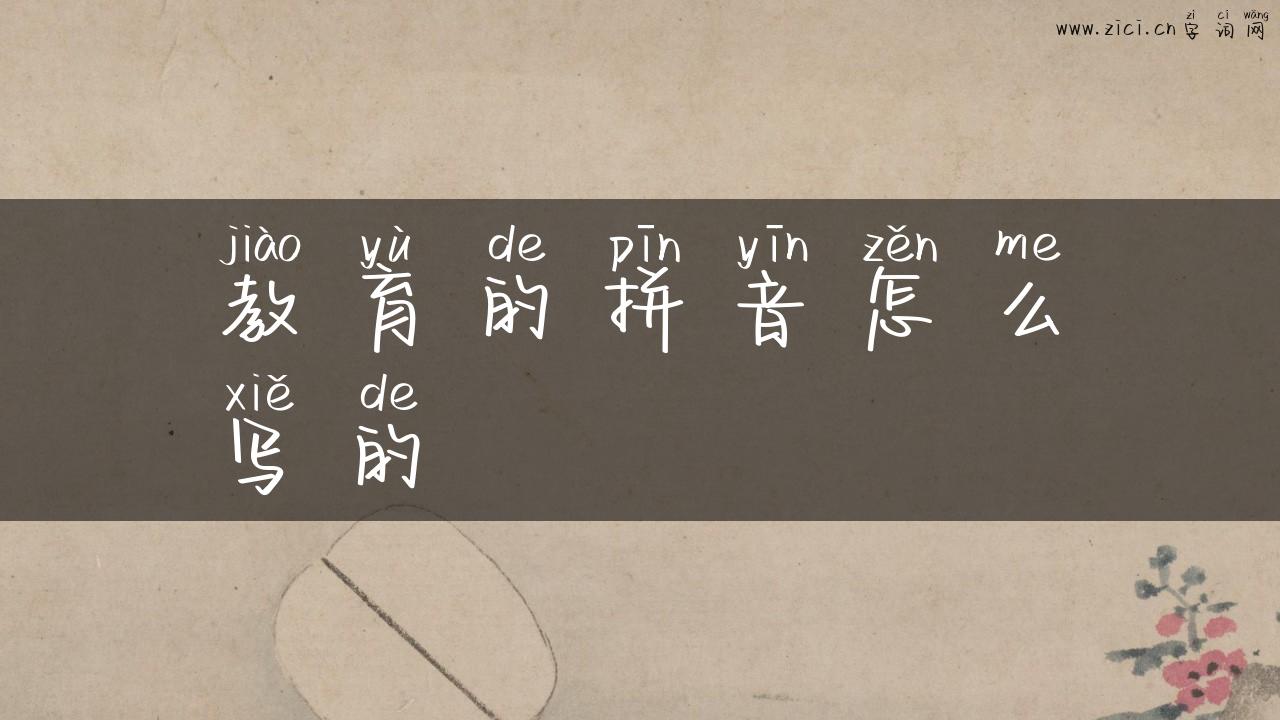 zì cí wǎng
www.zici.cn 字词网
jiào yù de pīn yīn zěn me
教育的拼音怎么
xiě de
写的